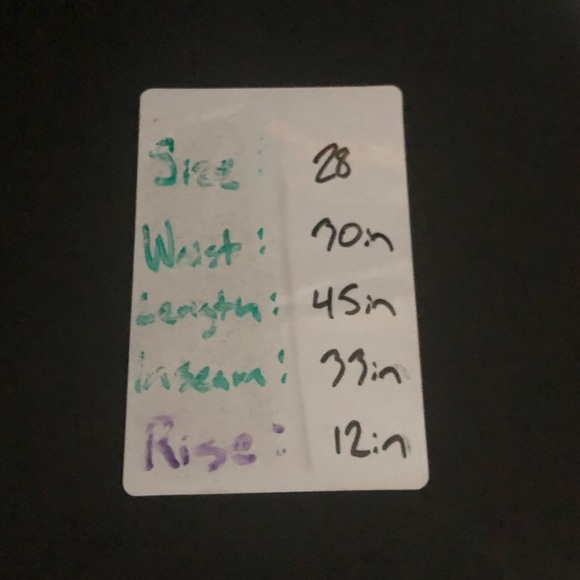 Size: 28
Waist: 30in
Length: 45in
inseam: 33in
Rise: 12in